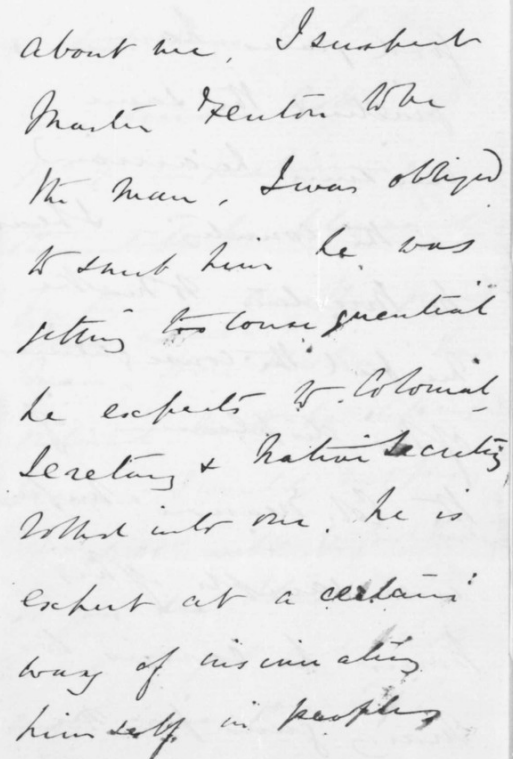 about me, I suspect
Master Fenton to be
the man, I was obliged
to snub him he was
getting too consequential
he expects to Colonial
Secretary & Native Secretary
rolled into one. he is
expert at a certain
way of insinuating
himself in peoples